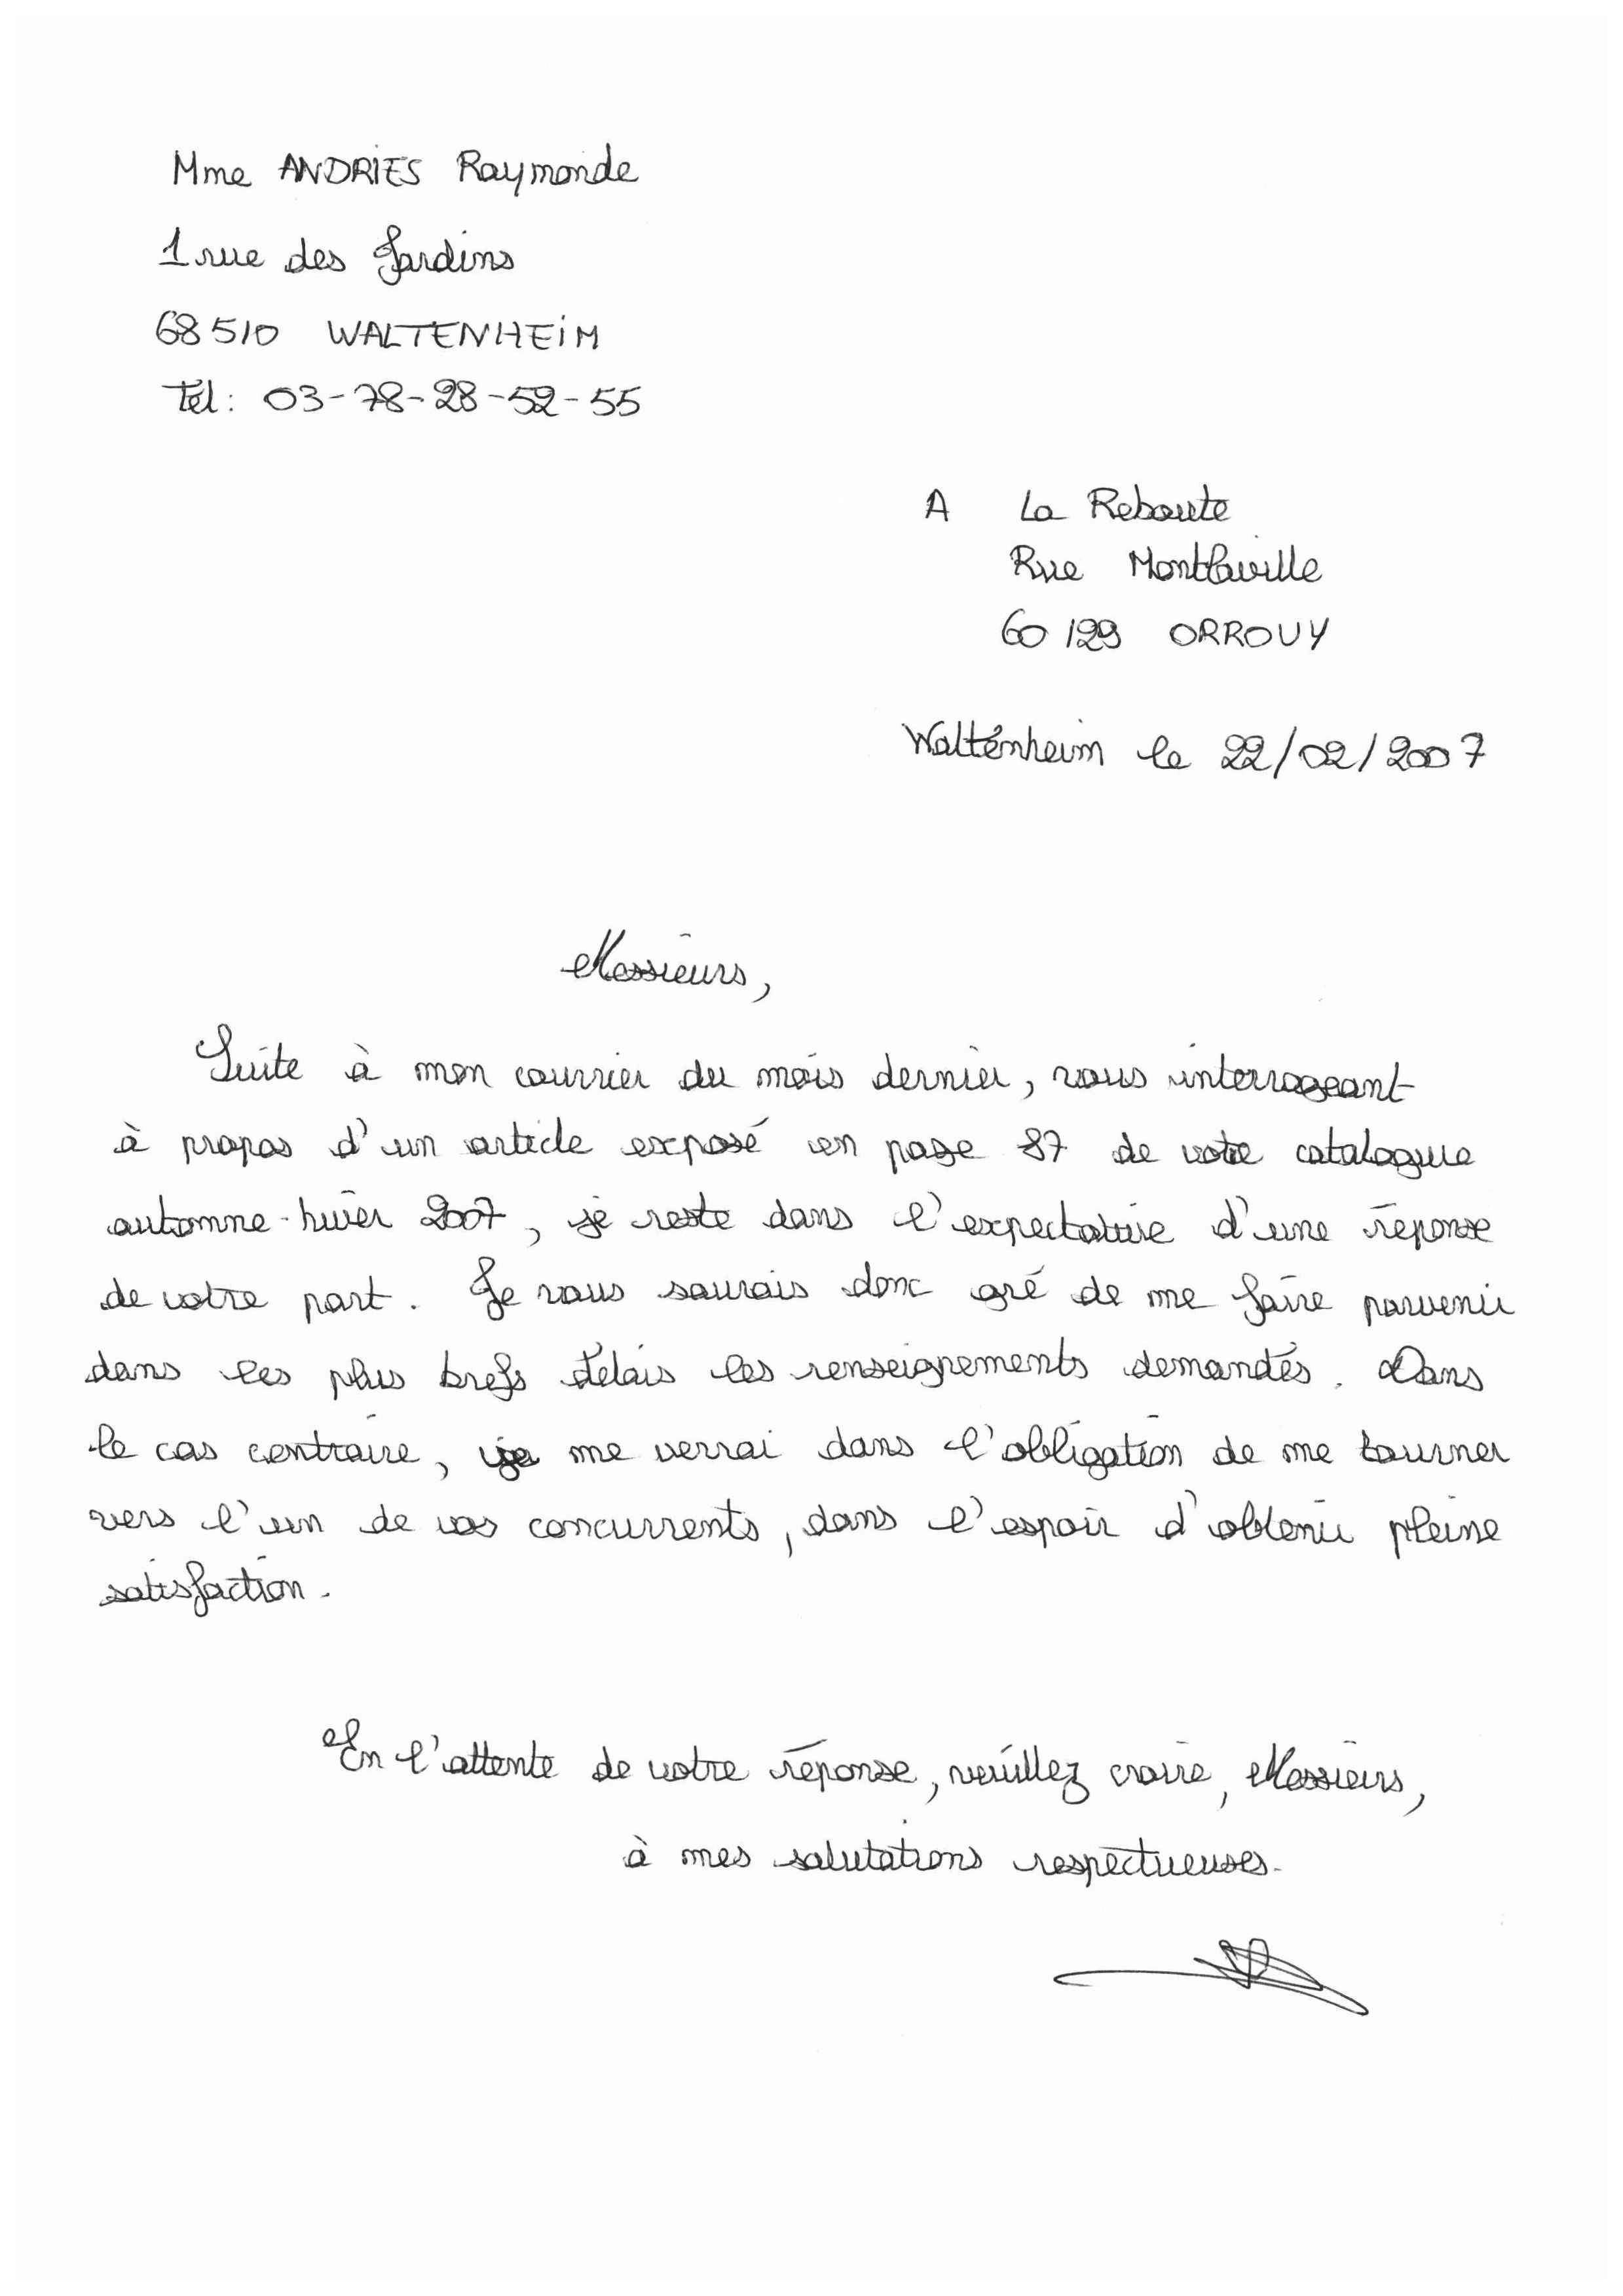 Mme ANDRIES Raymonde
1 rue des Jardins
68510 WALTENHEIM
Tél: 03-78-28-52-55
A La Reboute
Rue Montlaville
60129 ORROUY
Waltenheim le 22/02/2007
Messieurs,
Suite à mon courrier du mois dernier, vous interrogeant
à propos d'un article exposé en page 87 de votre catalogue
automne-hiver 2007, je reste dans l'expectative d'une réponse
de votre part. Je vous saurais donc gré de me faire parvenir
dans les plus brefs délais les renseignements demandés. Dans
le cas contraire, je me verrai dans l'obligation de me tourner
vers l'un de vos concurrents, dans l'espoir d'obtenir pleine
satisfaction.
En l'attente de votre réponse, veuillez croire, Messieurs,
à mes salutations respectueuses.